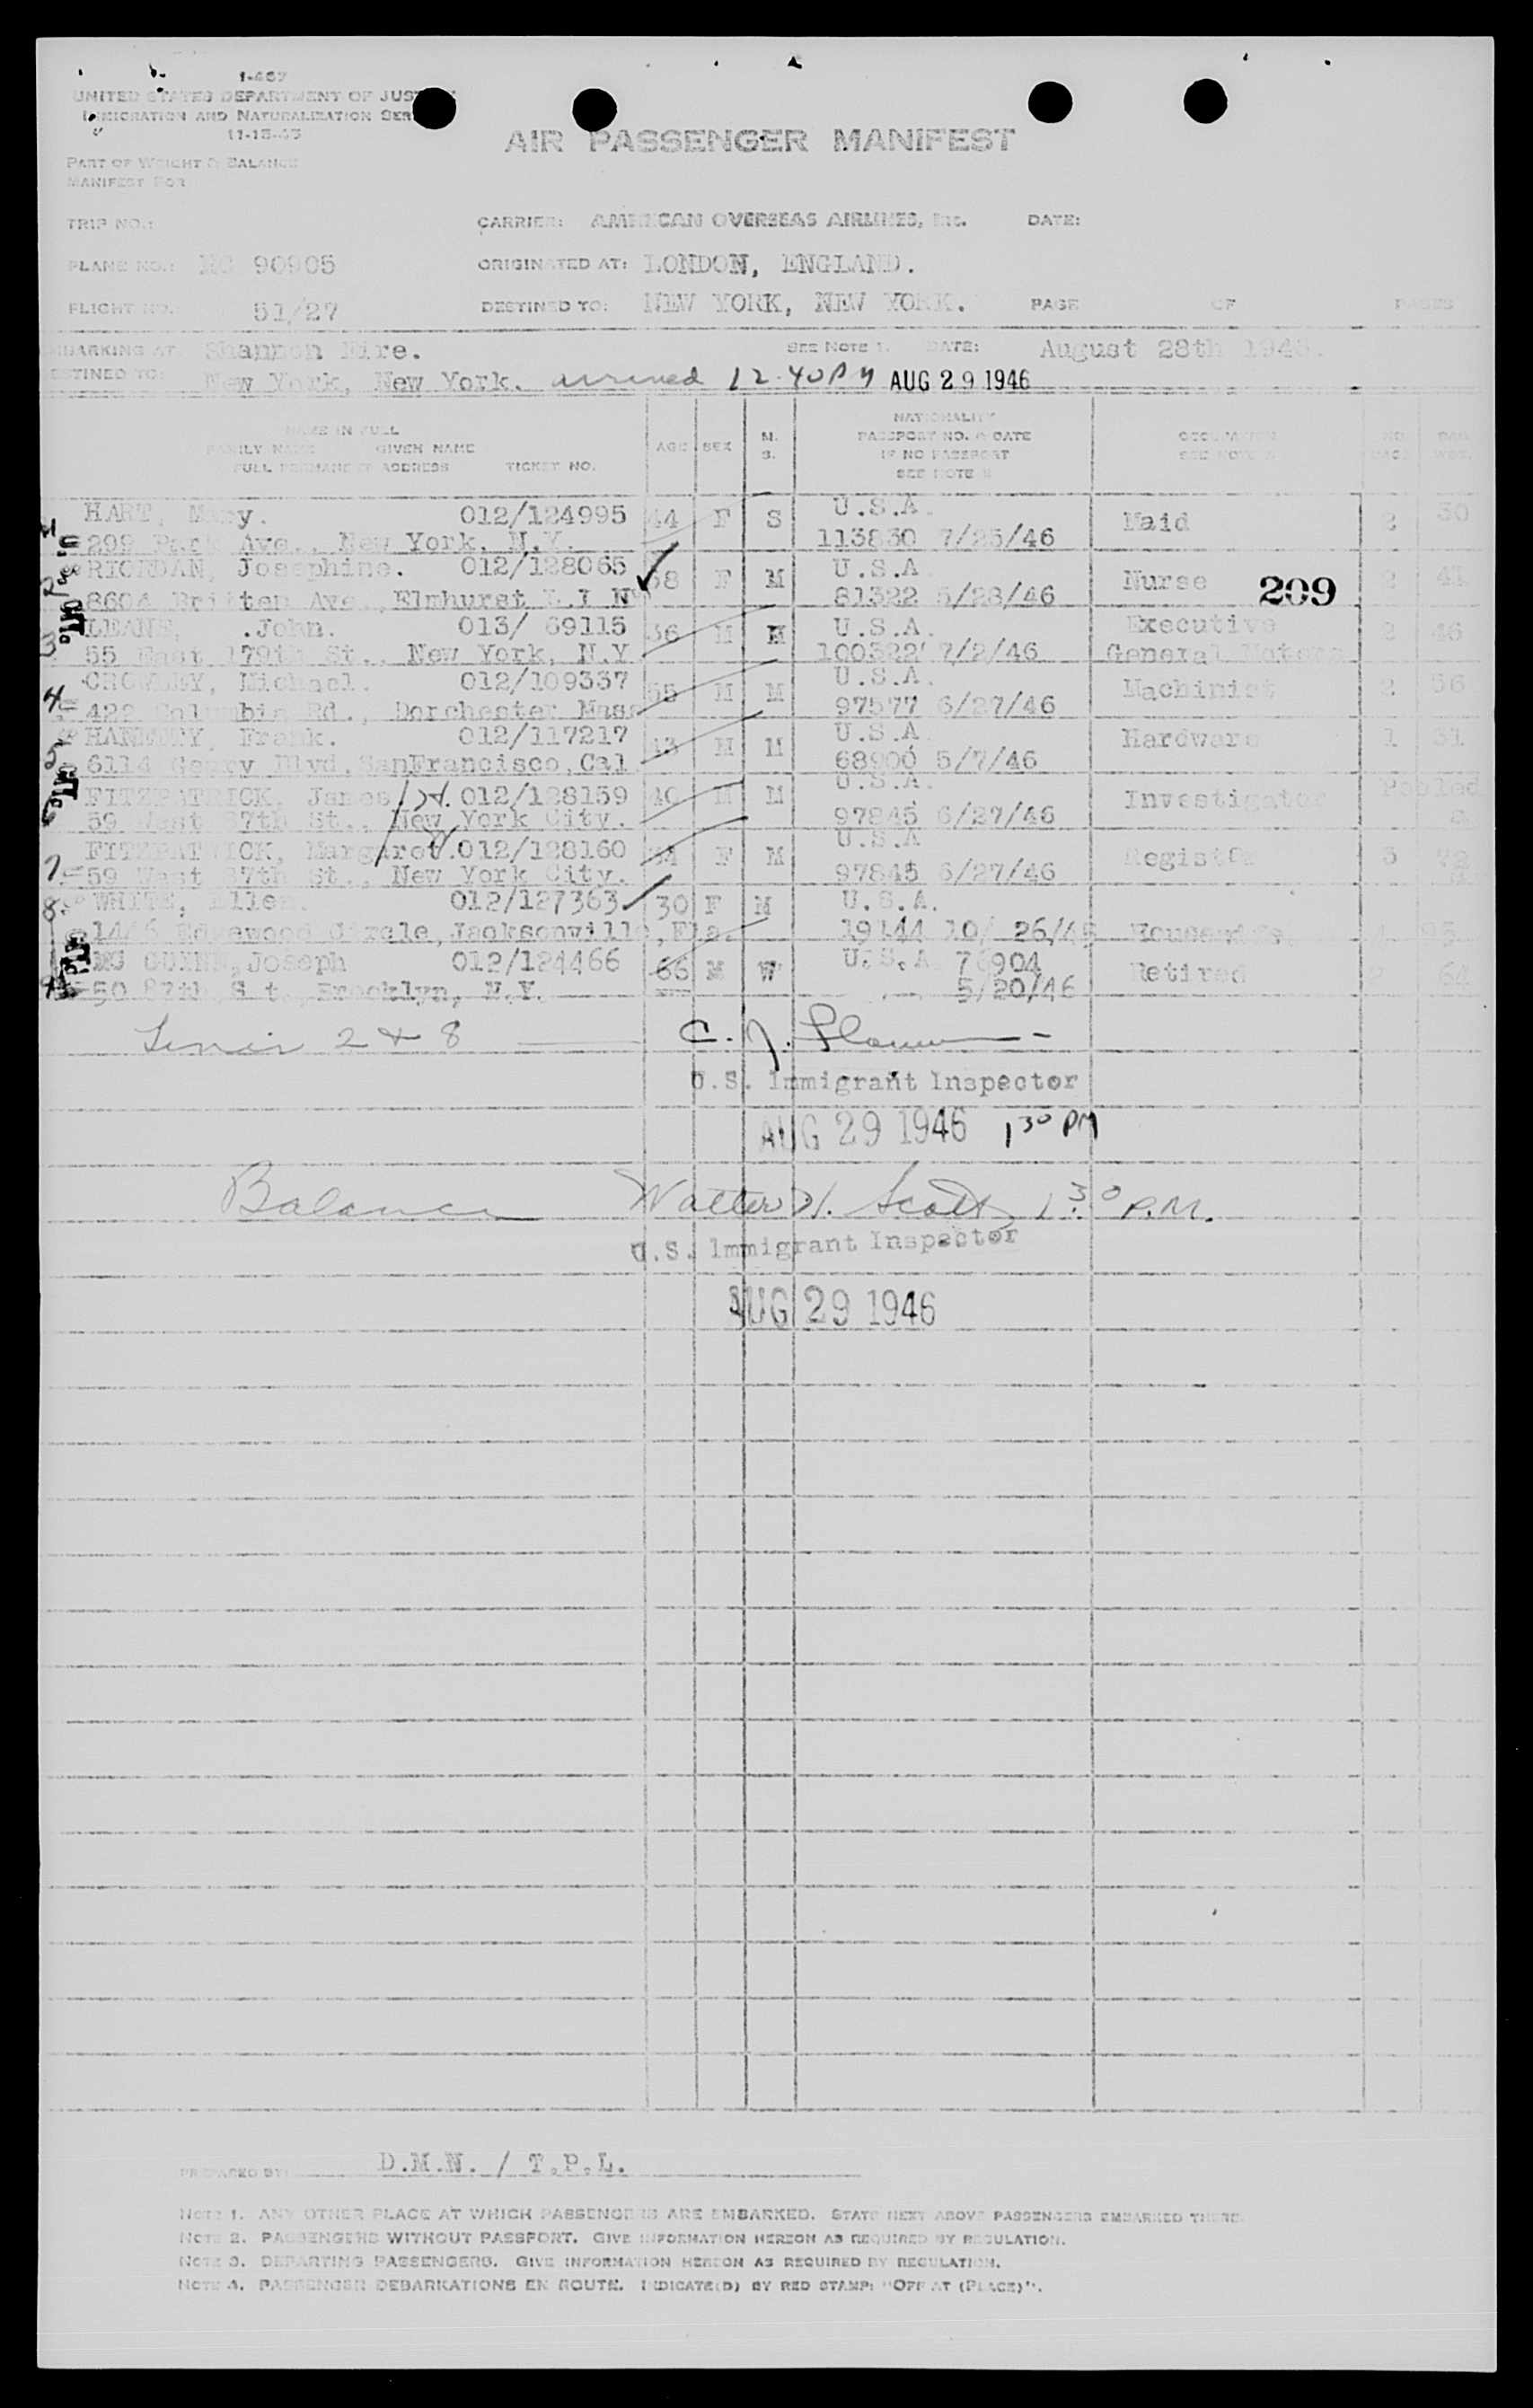 I-467
UNITED STATES DEPARTMENT OF JUSTICE
IMMIGRATION AND NATURALIZATION SER
11-15-45
AIR PASSENGER MANIFEST
PART OF WEIGHT & BALANCE
MANIFEST FOR
TRIP NO.: CARRIER: AMERICAN OVERSEAS AIRLINES, INC. DATE:
PLANE NO.: NC 90905 ORIGINATED AT: LONDON, ENGLAND.
FLIGHT NO.: 51/27 DESTINED TO: NEW YORK, NEW YORK. PAGE OF PAGES
EMBARKING AT: Shannon Eire. SEE NOTE 1. DATE: August 28th 1946.
DESTINED TO: New York, New York. arrived 12:40 PM AUG 29 1946
NAME IN FULL
FAMILY NAME GIVEN NAME
FULL PERMANENT ADDRESS TICKET NO.
AGE SEX M. S.
NATIONALITY
PASSPORT NO. & DATE
IF NO PASSPORT
SEE NOTE
OCCUPATION
SEE NOTE
HART, Mary. 012/124995 44 F S U.S.A. Maid 2 30
299 Park Ave., New York, N.Y. 113830 7/25/46
2 RIORDAN, Josephine. 012/128065 F M U.S.A Nurse 209 2 41
Ave., Elmhurst L.I N 81322 5/28/46
3 John. 013/ 69115 36 M M U.S.A. Executive 2 46
55 East 179th St., New York, N.Y 100322 7/2/46 General Motors
4 CROWLEY, Michael. 012/109337 M M U.S.A. Machinist 2 56
422 Columbia Rd., Dorchester Mass 97577 6/27/46
5 Frank. 012/117217 43 M M U.S.A Hardware 1 31
6114 Geary Blvd, SanFrancisco, Cal 68900 5/7/46
FITZPATRICK, James. 012/128159 40 M M U.S.A. Investigator Pooled
59 West 87th St., New York City. 97845 6/27/46
7 FITZPATRICK, Margaret. 012/128160 F M U.S.A Register 3 72
59 West 87th St., New York City. 97845 6/27/46
8 WHITE, Ellen. 012/127363 30 F M U.S.A.
Edgewood Circle, Jacksonville, Fla. 19144 10/ 26/45 Housewife 95
9 MC GUIRE, Joseph 012/124466 66 M W U.S.A 76904 Retired 2 64
50 87th S t., Brooklyn, N.Y. 5/20/46
Lines 2 & 8 C. J.
U.S. Immigrant Inspector
AUG 29 1946 1 30 PM
Balance Walter H. Scott 1:30 P.M.
U.S. Immigrant Inspector
AUG 29 1946
PREPARED BY: D.M.N. / T.P.L.
NOTE 1. ANY OTHER PLACE AT WHICH PASSENGERS ARE EMBARKED. STATE NEXT ABOVE PASSENGERS EMBARKED THERE.
NOTE 2. PASSENGERS WITHOUT PASSPORT. GIVE INFORMATION HEREON AS REQUIRED BY REGULATION.
NOTE 3. DEPARTING PASSENGERS. GIVE INFORMATION HEREON AS REQUIRED BY REGULATION.
NOTE 4. PASSENGER DEBARKATIONS EN ROUTE. INDICATE(D) BY RED STAMP: "OFF AT (PLACE)".